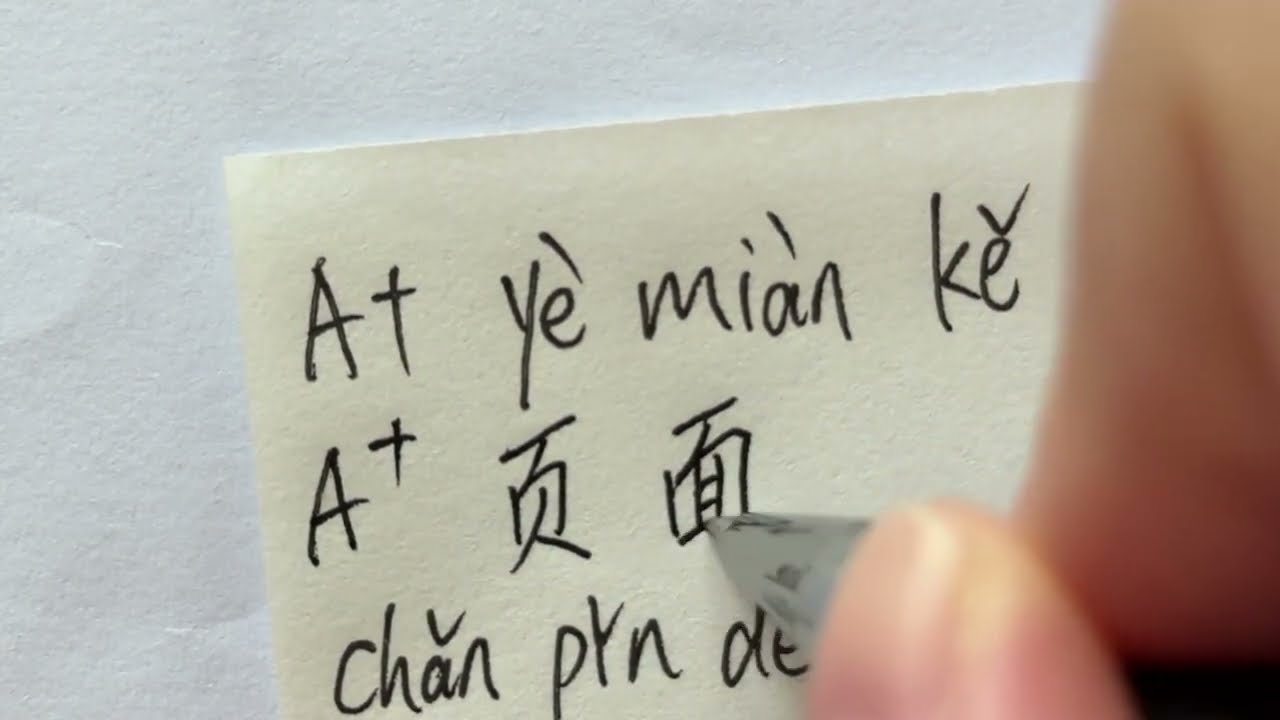 A+ yè miàn kě
A+ 页 面
chǎn pǐn de